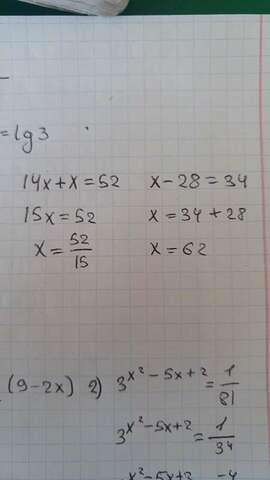 = lg 3
14x + x = 52    x - 28 = 34
15x = 52    x = 34 + 28
x = 52/15    x = 62
(9-2x)  2) 3^(x²-5x+2) = 1/81
3^(x²-5x+2) = 1/3⁴
x²-5x+2    -4